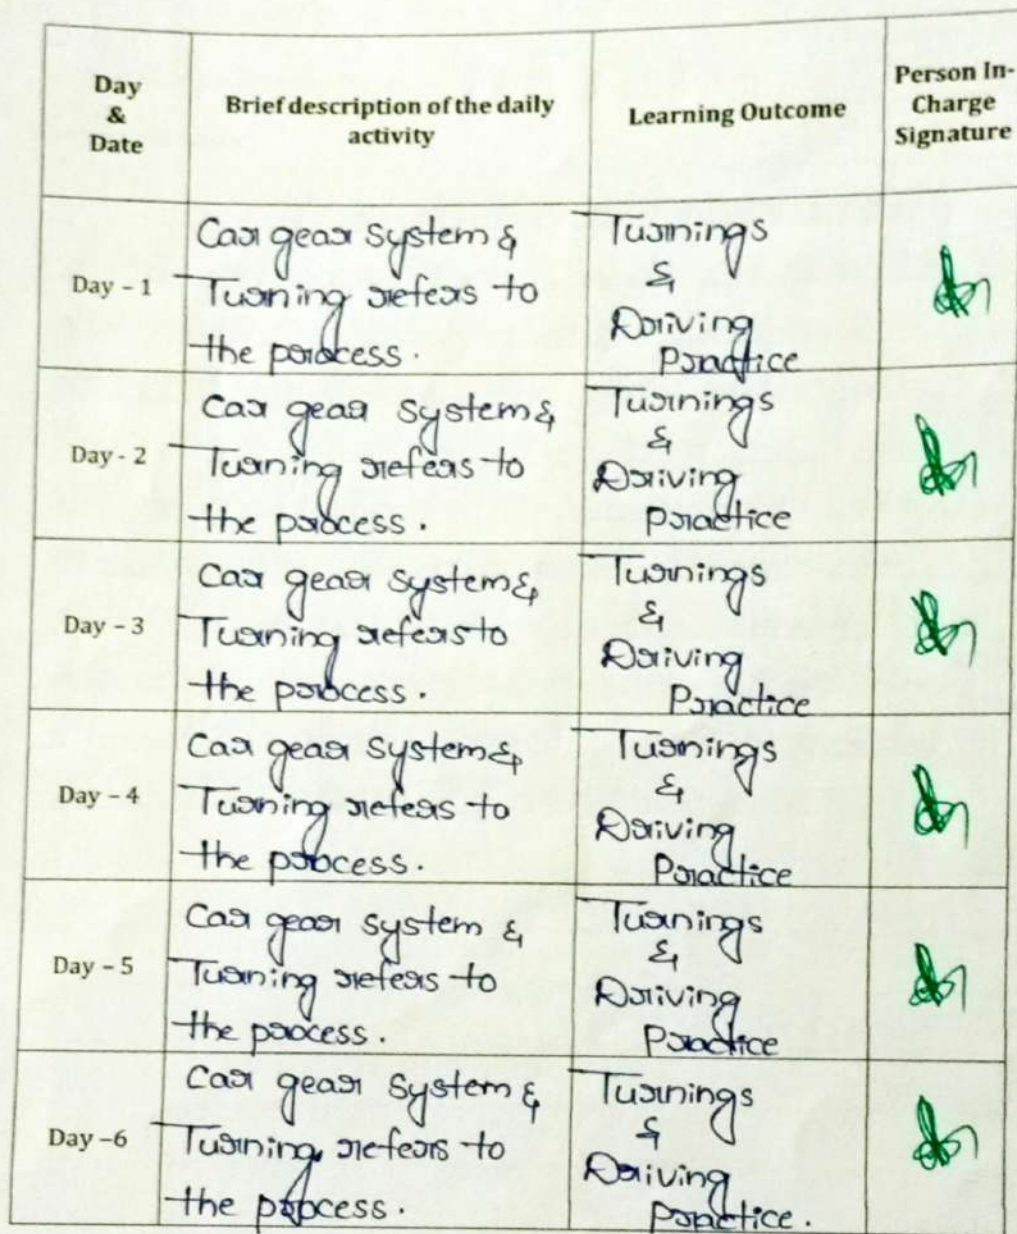 Day
&
Date
Brief description of the daily
activity
Learning Outcome
Person In-
Charge
Signature
Day - 1
Car gear system &
Turning refers to
the process.
Turnings
&
Driving
Practice
Day - 2
Car gear system &
Turning refers to
the process.
Turnings
&
Driving
practice
Day - 3
Car gear system &
Turning refers to
the process.
Turnings
&
Driving
Practice
Day - 4
Car gear system &
Turning refers to
the process.
Turnings
&
Driving
Practice
Day - 5
Car gear system &
Turning refers to
the process.
Turnings
&
Driving
Practice
Day -6
Car gear system &
Turning refers to
the process.
Turnings
&
Driving
practice.